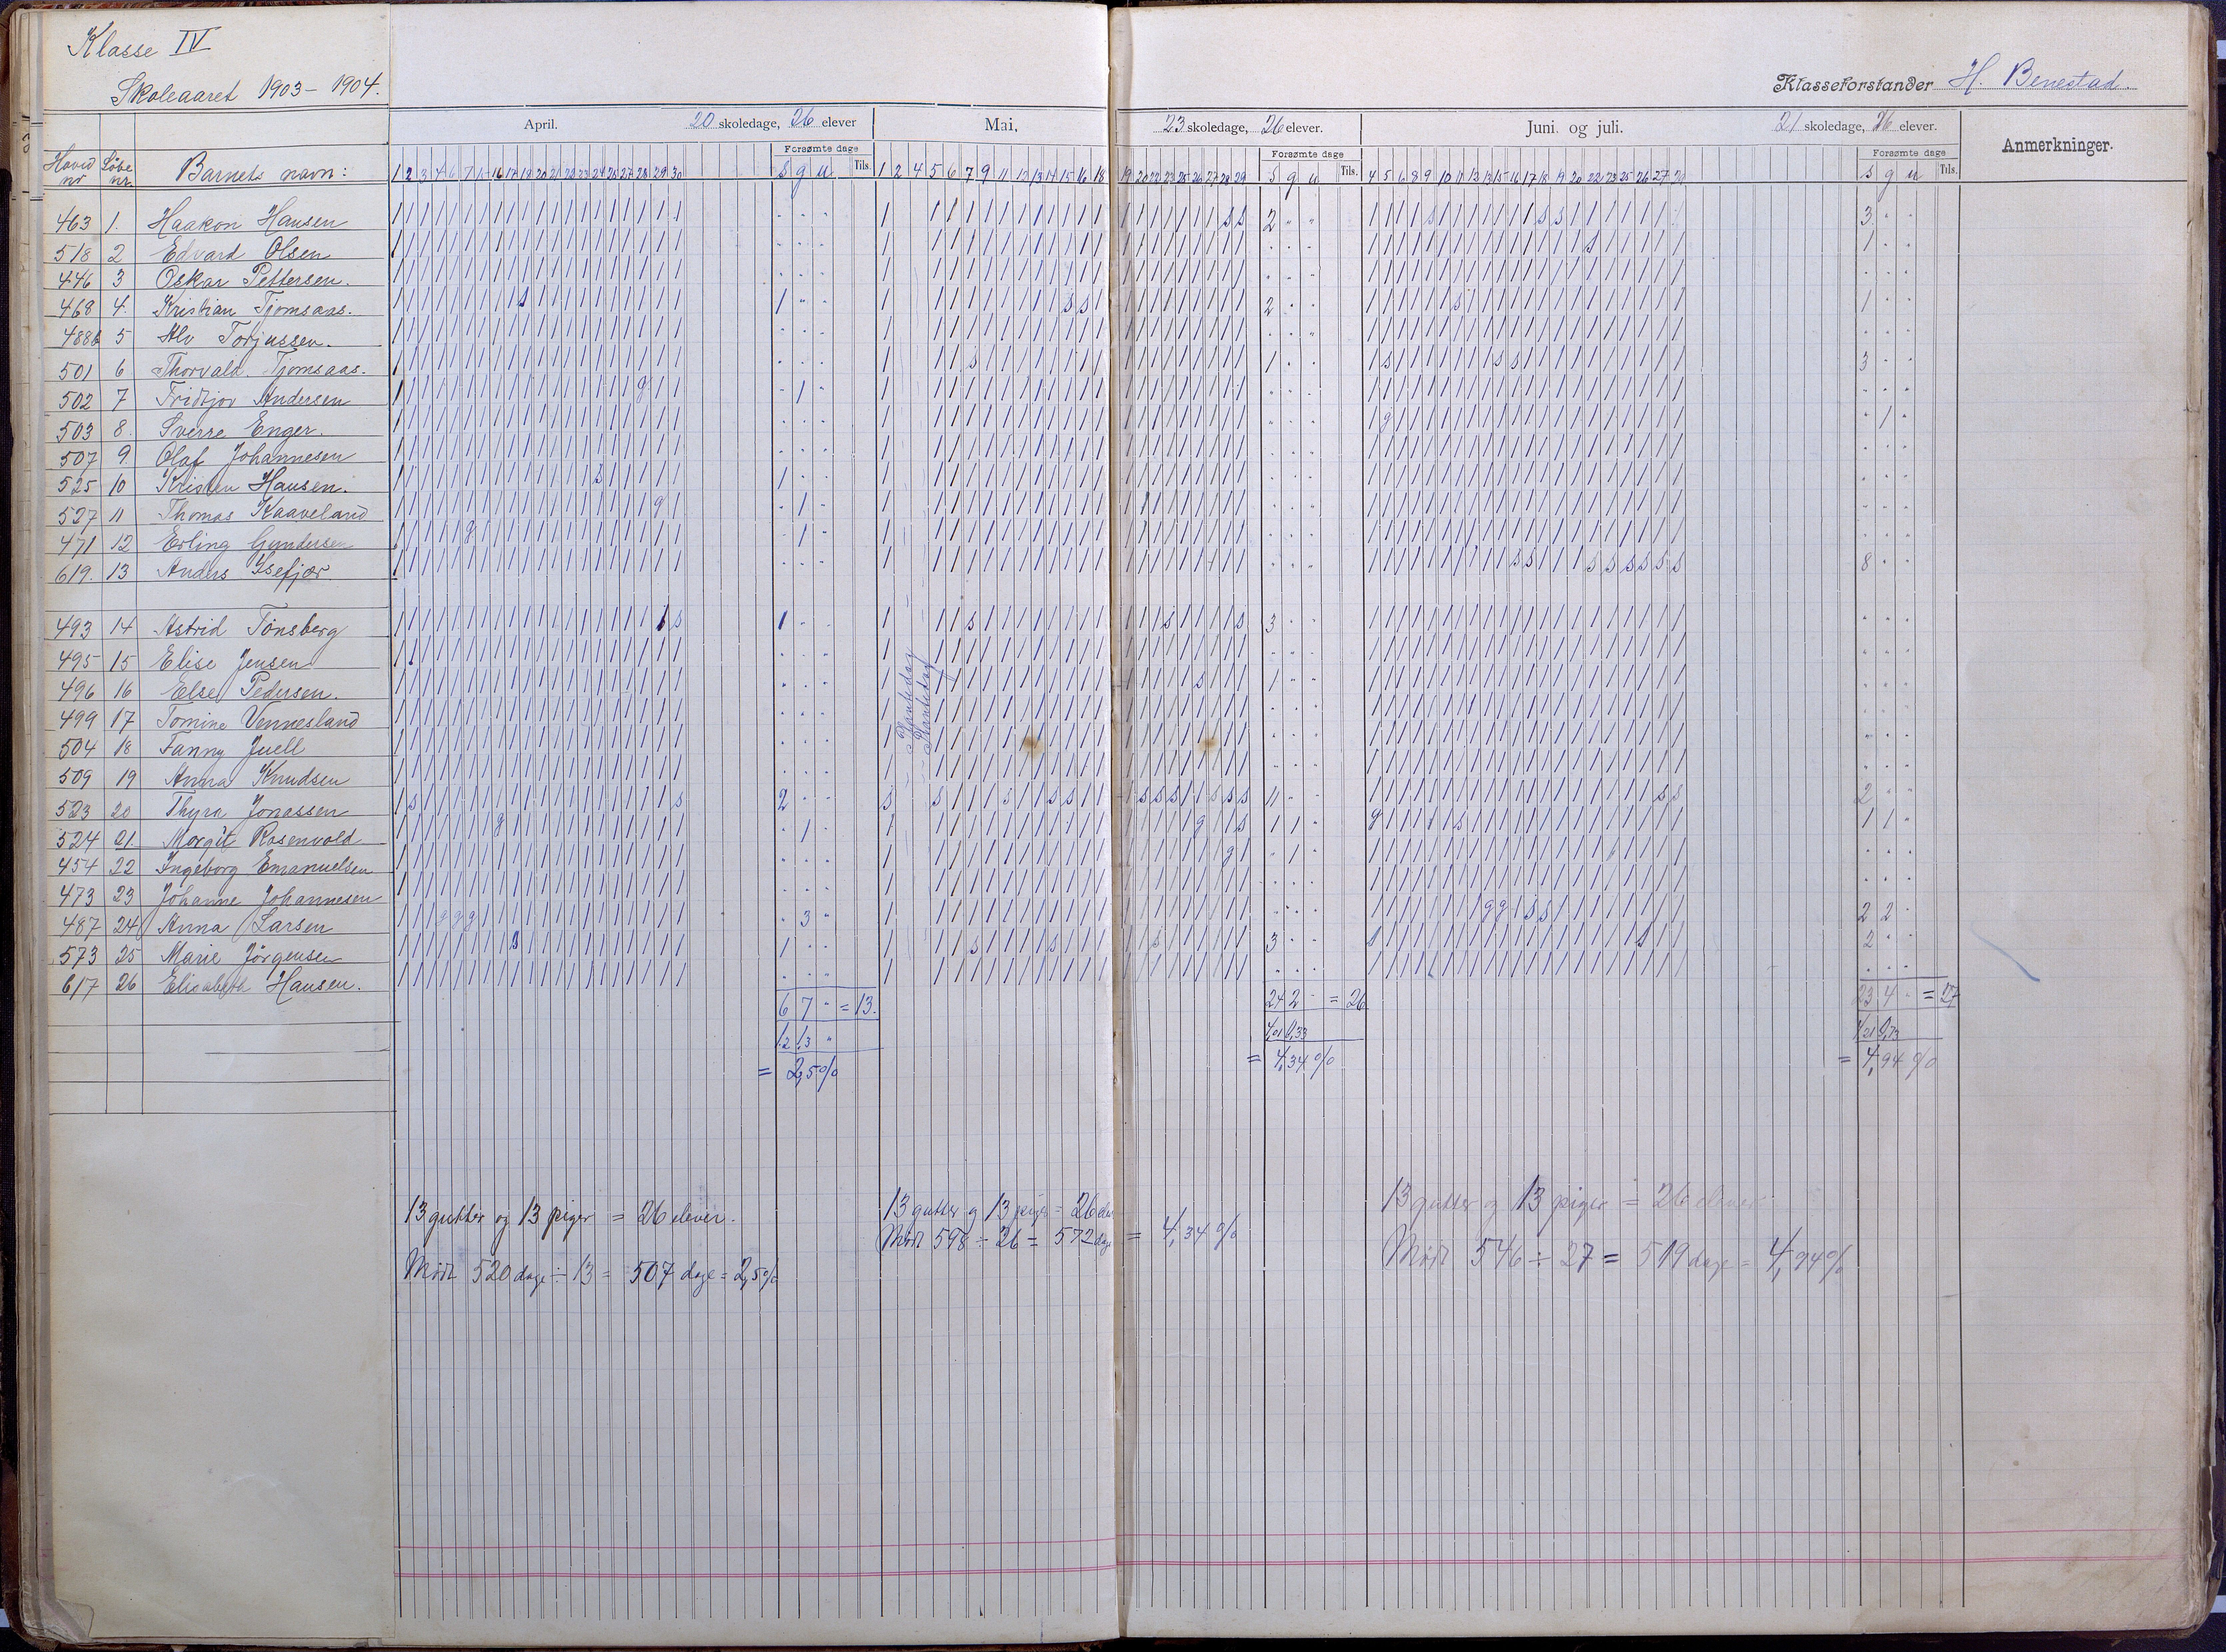 Klasse IV
Skoleaaret 1903–1904.
Klasseforstander H. Benestad.
April. 20 skoledage, 26 elever
Mai. 23 skoledage, 26 elever.
Juni og juli. 21 skoledage, 26 elever.
Anmerkninger.
Hoved nr Löbe nr. Barnets navn:
Forsømte dage
s g u Tils.
Forsømte dage
s g u Tils.
Forsømte dage
s g u Tils.
463 1. Haakon Hansen
518 2 Edvard Olsen
446 3 Oskar Pettersen.
468 4. Kristian Tjomsaas.
488b 5 Alv Torjussen.
501 6 Thorvald Tjomsaas.
502 7 Fridtjov Andersen
503 8. Sverre Enger.
507 9. Olaf Johannesen
525 10 Kristen Hansen.
527 11 Thomas Kaaveland
471 12 Erling Gundersen
619. 13 Anders Isefjær
493 14 Astrid Tönsberg
495 15 Elise Jensen
496 16 Else Pedersen.
499 17 Tomine Vennesland
504 18 Fanny Juell
509 19 Anna Knudsen
523 20 Thyra Jonassen
524 21. Margit Rosenvold
454 22 Ingeborg Emanuelsen
473 23 Johanne Johannesen
487 24 Anna Larsen
573 25 Marie Jörgensen
617 26 Elisabeth Hansen.
Plantedag
Plantedag
6 7 " = 13.
1,2 1,3 "
= 2,5%
24 2 - = 26
4,01 0,33
= 4,34%
23 4 - = 27
4,21 0,73
= 4,94%
13 gutter og 13 piger = 26 elever.
Mødt 520 dage ÷ 13 = 507 dage = 2,5%
13 gutter og 13 piger = 26 elev
Mødt 598 ÷ 26 = 572 dage = 4,34%
13 gutter og 13 piger = 26 elever
Mødt 546 ÷ 27 = 519 dage = 4,94%